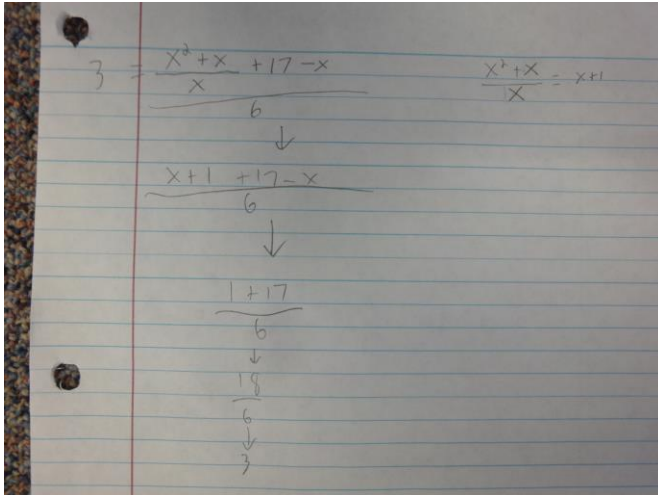 3 = x² + x / x + 17 - x / 6
x² + x / x = x + 1
↓
x + 1 + 17 - x / 6
↓
1 + 17 / 6
↓
18 / 6
↓
3